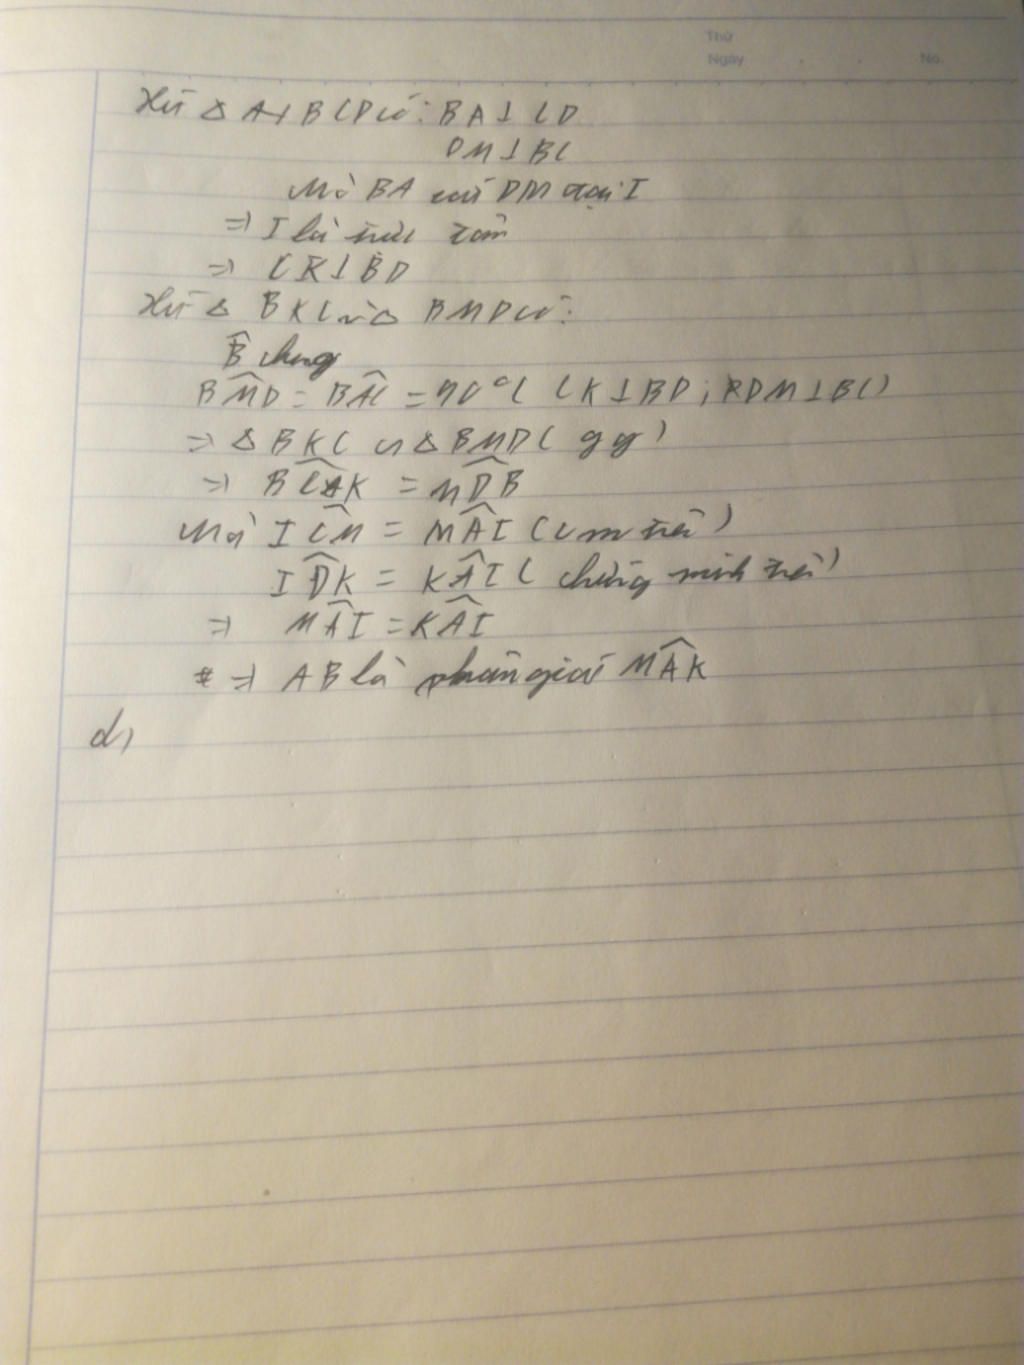 Thứ
Ngày . . No.
Xét Δ BCD có: BA ⊥ CD
DM ⊥ BC
Mà BA cắt DM tại I
=> I là trực tâm
=> CK ⊥ BD
Xét Δ BKC và Δ BMD có:
B̂ chung
BM̂D = BK̂C = 90°( CK ⊥ BD ; DM ⊥ BC)
=> Δ BKC ∽ Δ BMD( gg )
=> BĈK = MD̂B
Mà IĈM = MÂI (cm trên)
ID̂K = KÂI ( chứng minh trên)
=> MÂI = KÂI
=> AB là phân giác MÂK
d)